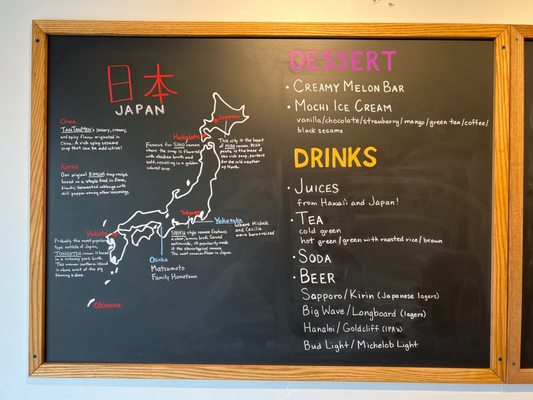 日本
JAPAN
China
TANTANMEN's savory, creamy,
and spicy flavor originated in
China. A rich spicy sesame
soup that can be addictive!
Korea
Our original KIMCHI
Hakodate
Famous for SHIO ramen
where the soup is flavored
with chicken broth and
salt, resulting in a golden
colored soup.
Sapporo
This city is the heart
of MISO ramen. Miso
paste is the base of
this rich soup, perfect
for the cold weather
up North.
Tokyo
SHOYU style ramen features
Yokota
where Michele
and Cecilia
were born + raised
Hakata
Probably the most popular
type outside of Japan,
TONKOTSU ramen is based
in a creamy pork broth.
This warmer southern island
is where most of the pig
farming is done.
Osaka
Matsumoto
Family Hometown
Okinawa
DESSERT
• CREAMY MELON BAR
• MOCHI ICE CREAM
vanilla/chocolate/strawberry/mango/green tea/coffee/
black sesame
DRINKS
• JUICES
from Hawaii and Japan!
• TEA
cold green
hot green/green with roasted rice/brown
• SODA
• BEER
Sapporo/Kirin (Japanese lagers)
Big Wave/Longboard (lagers)
Hanalei/Goldcliff (IPA's)
Bud Light/Michelob Light